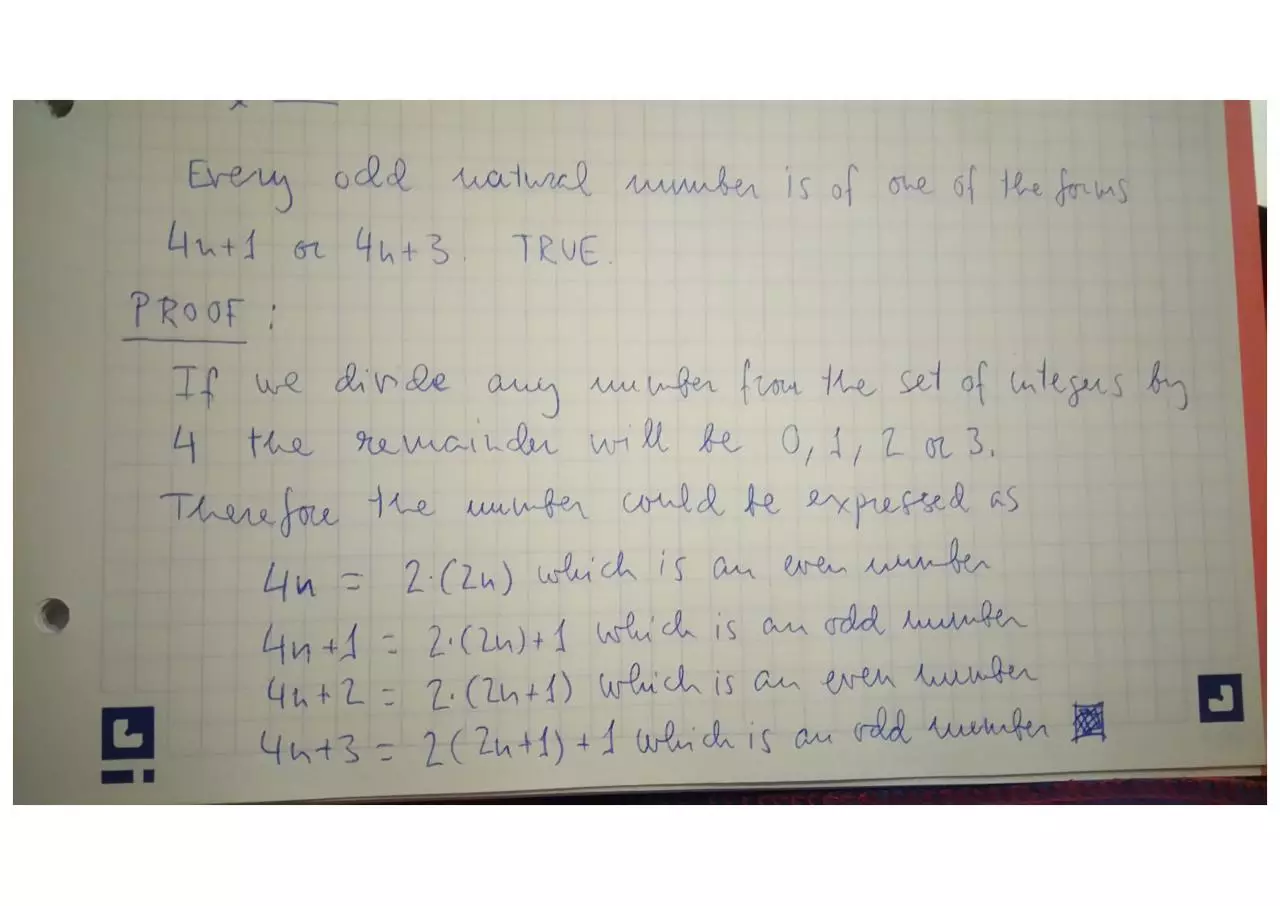 Every odd natural number is of one of the forms
4n+1 or 4n+3. TRUE.
PROOF:
If we divide any number from the set of integers by
4 the remainder will be 0, 1, 2 or 3.
Therefore the number could be expressed as
4n = 2·(2n) which is an even number
4n+1 = 2·(2n)+1 which is an odd number
4n+2 = 2·(2n+1) which is an even number
4n+3 = 2(2n+1)+1 which is an odd number